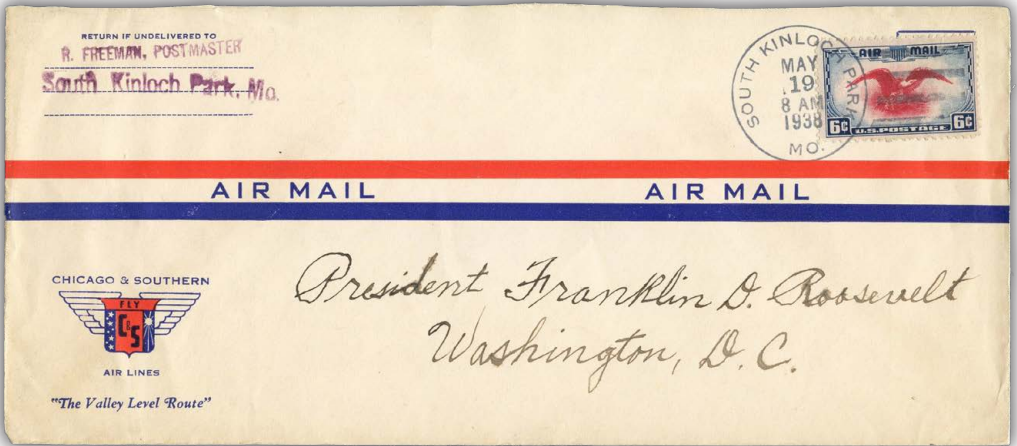 RETURN IF UNDELIVERED TO
R. FREEMAN, POSTMASTER
South Kinloch Park, Mo.
SOUTH KINLOCH PARK
MAY
19
8 AM
1938
MO.
AIR MAIL
6¢ U.S. POSTAGE 6¢
AIR MAIL AIR MAIL
CHICAGO & SOUTHERN
FLY
C&S
AIR LINES
"The Valley Level Route"
President Franklin D. Roosevelt
Washington, D.C.